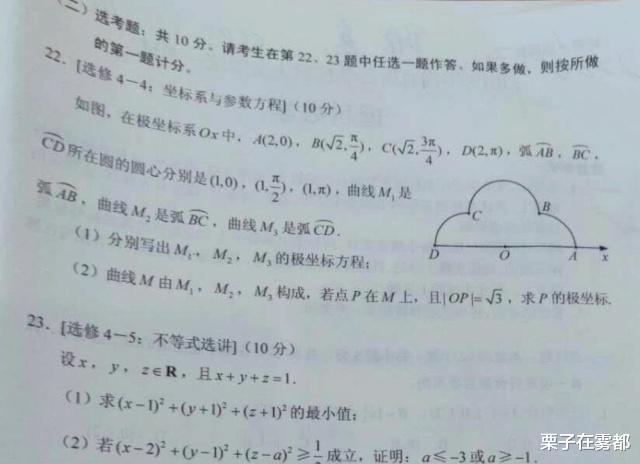 (二)选考题：共 10 分。请考生在第 22、23 题中任选一题作答。如果多做，则按所做
的第一题计分。
22．[选修 4－4：坐标系与参数方程]（10 分）
如图，在极坐标系 Ox 中，A(2,0)，B(√2,π/4)，C(√2,3π/4)，D(2,π)，弧 AB⌢，BC⌢，
CD⌢ 所在圆的圆心分别是 (1,0)，(1,π/2)，(1,π)，曲线 M₁ 是
弧 AB⌢，曲线 M₂ 是弧 BC⌢，曲线 M₃ 是弧 CD⌢．
（1）分别写出 M₁，M₂，M₃ 的极坐标方程；
（2）曲线 M 由 M₁，M₂，M₃ 构成，若点 P 在 M 上，且|OP|=√3，求 P 的极坐标.
C B
D O A x
23．[选修 4－5：不等式选讲]（10 分）
设 x，y，z∈R，且 x+y+z=1．
（1）求 (x－1)²+(y+1)²+(z+1)² 的最小值；
（2）若 (x－2)²+(y－1)²+(z－a)²≥1/ 成立，证明：a≤－3 或 a≥－1．
栗子在雾都